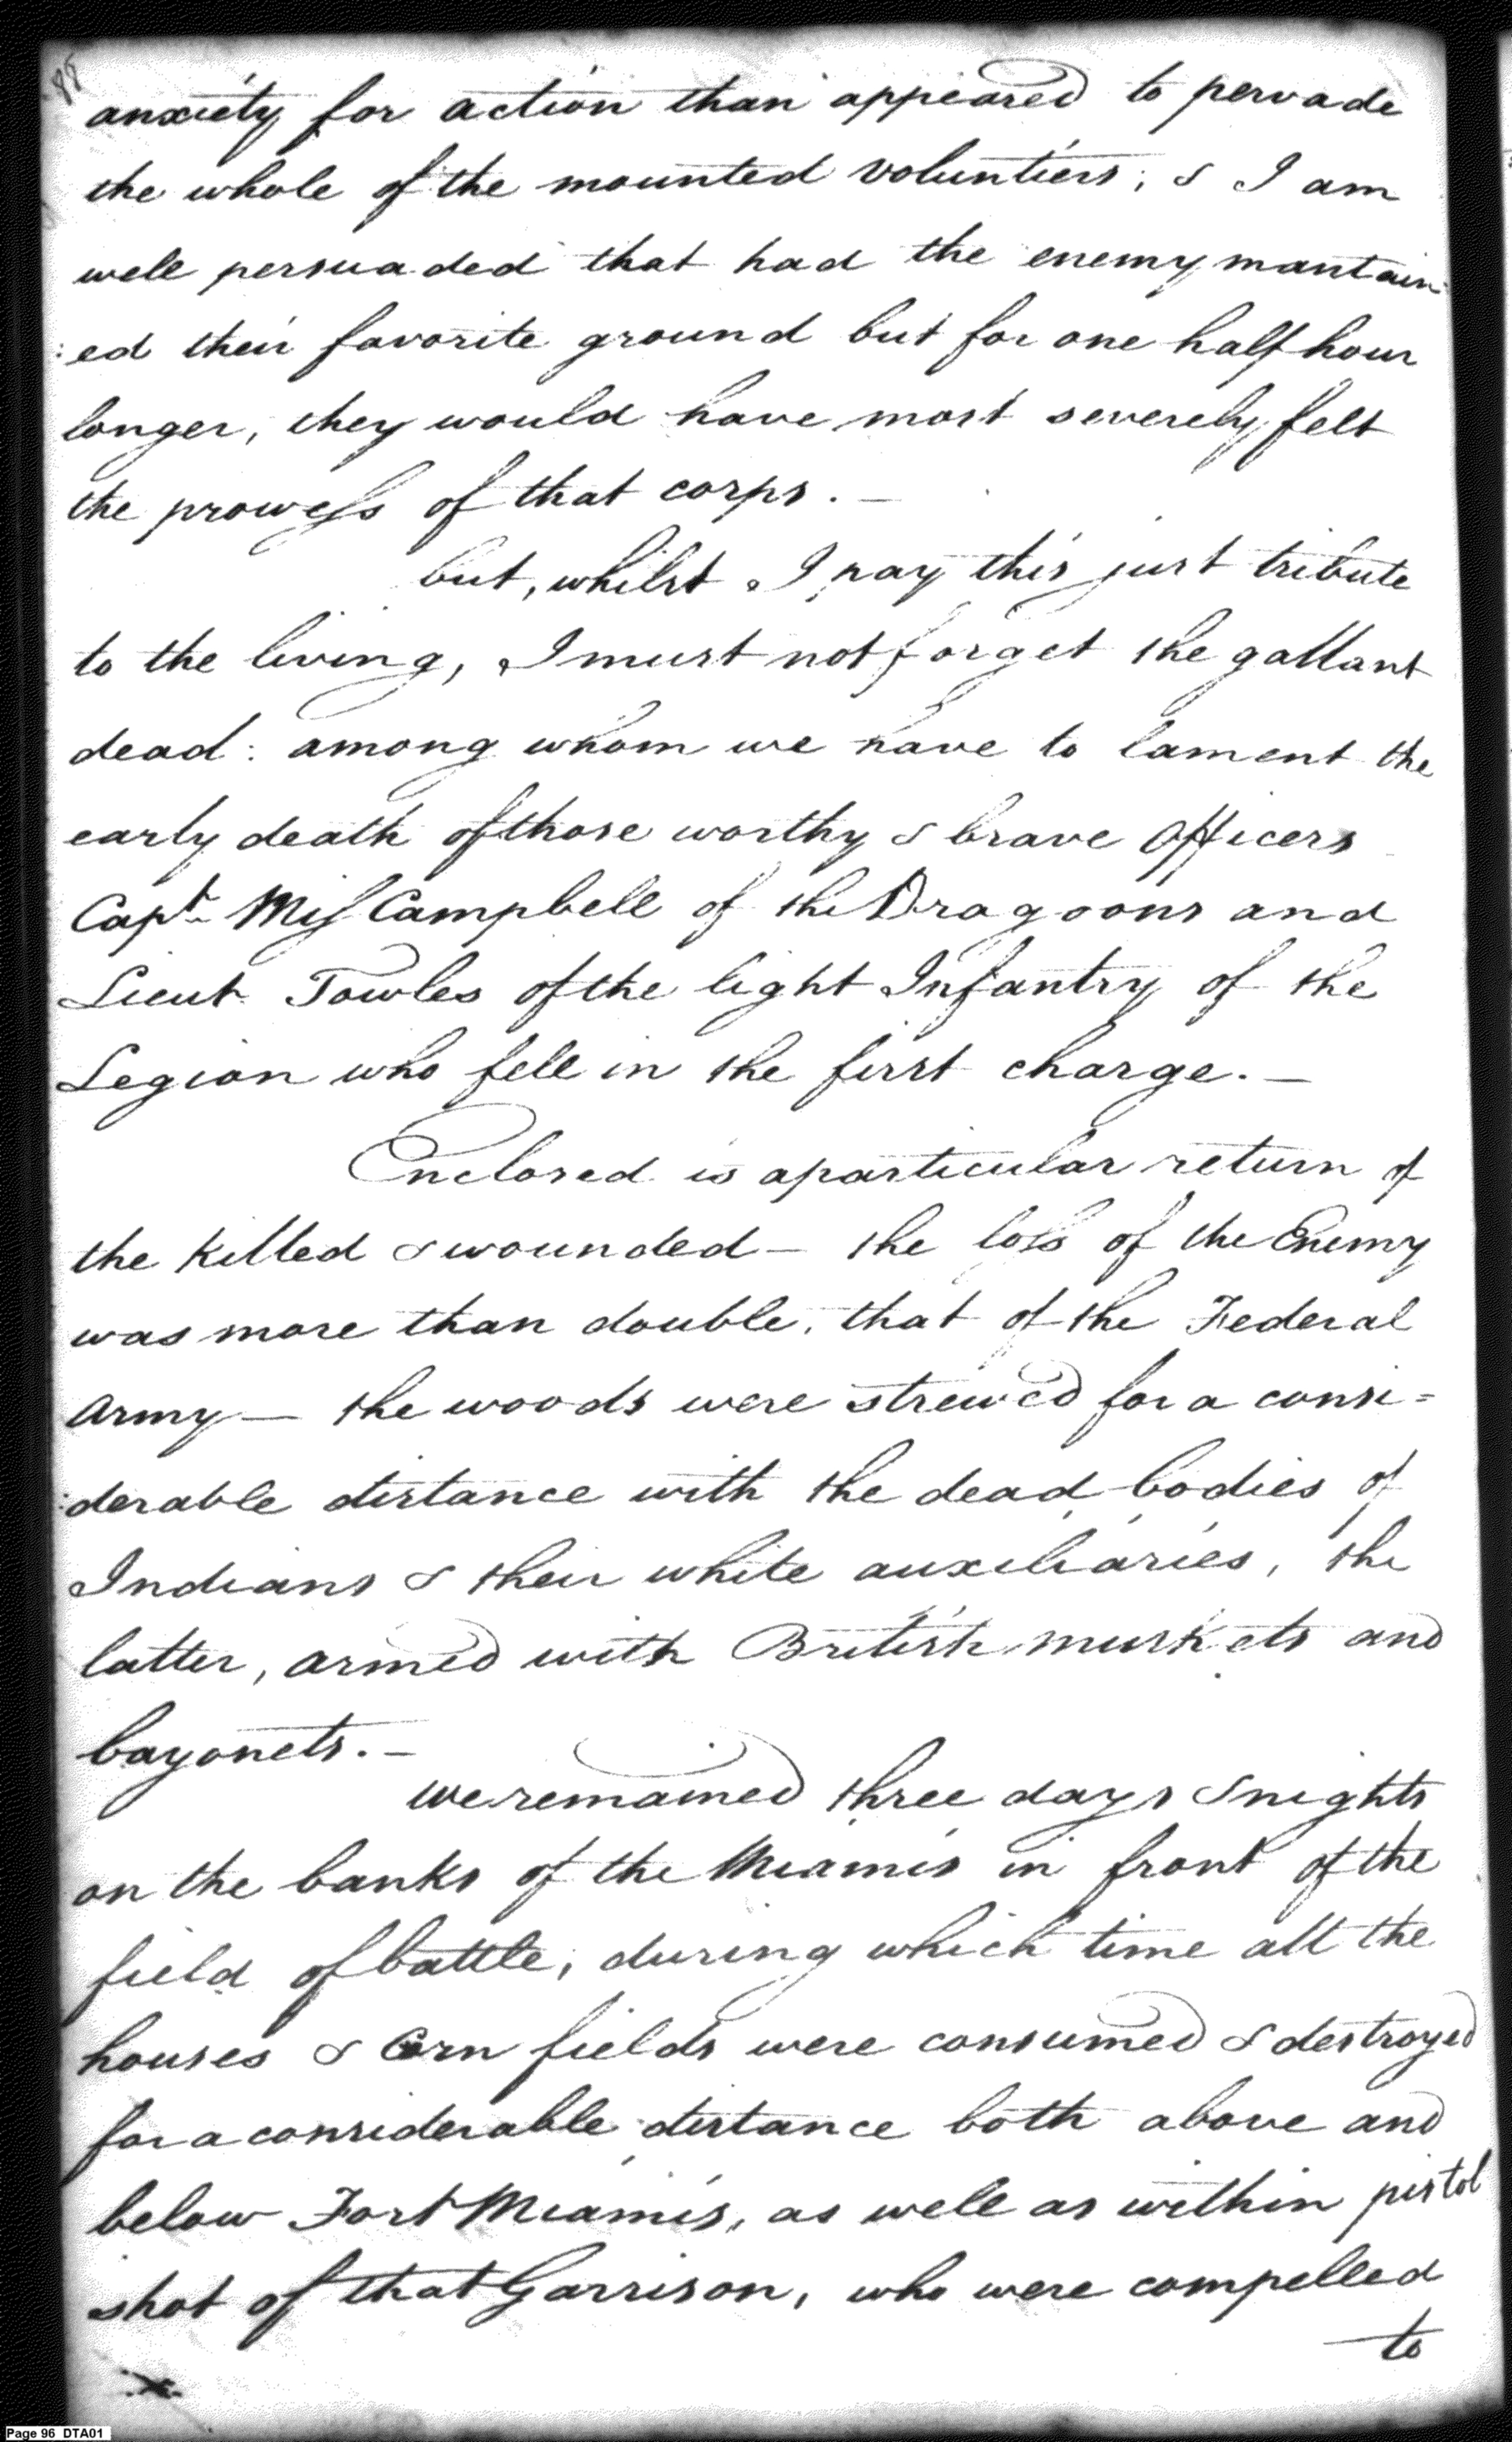 88
anxiety for action than appeared to pervade
the whole of the mounted voluntiers; & I am
well persuaded that had the enemy mantain:
:ed their favorite ground but for one half hour
longer, they would have most severely felt
the prowess of that corps. —
but, whilst I pay this just tribute
to the living, I must not forget the gallant
dead: among whom we have to lament the
early death of those worthy & brave Officers
Capt. Mis Campbell of the Dragoons and
Lieut. Towles of the light Infantry of the
Legion who fell in the first charge. —
Enclosed is a particular return of
the killed & wounded — the loss of the Enemy
was more than double, that of the Federal
Army — the woods were strewed for a consi=
:derable distance with the dead bodies of
Indians & their white auxiliaries, the
latter, armed with British muskets and
bayonets. —
We remained three days & nights
on the banks of the Miamis in front of the
field of battle, during which time all the
houses & Corn fields were consumed & destroyed
for a considerable distance both above and
below Fort Miamis, as well as within pistol
shot of that Garrison, who were compelled
to
Page 96 DTA01